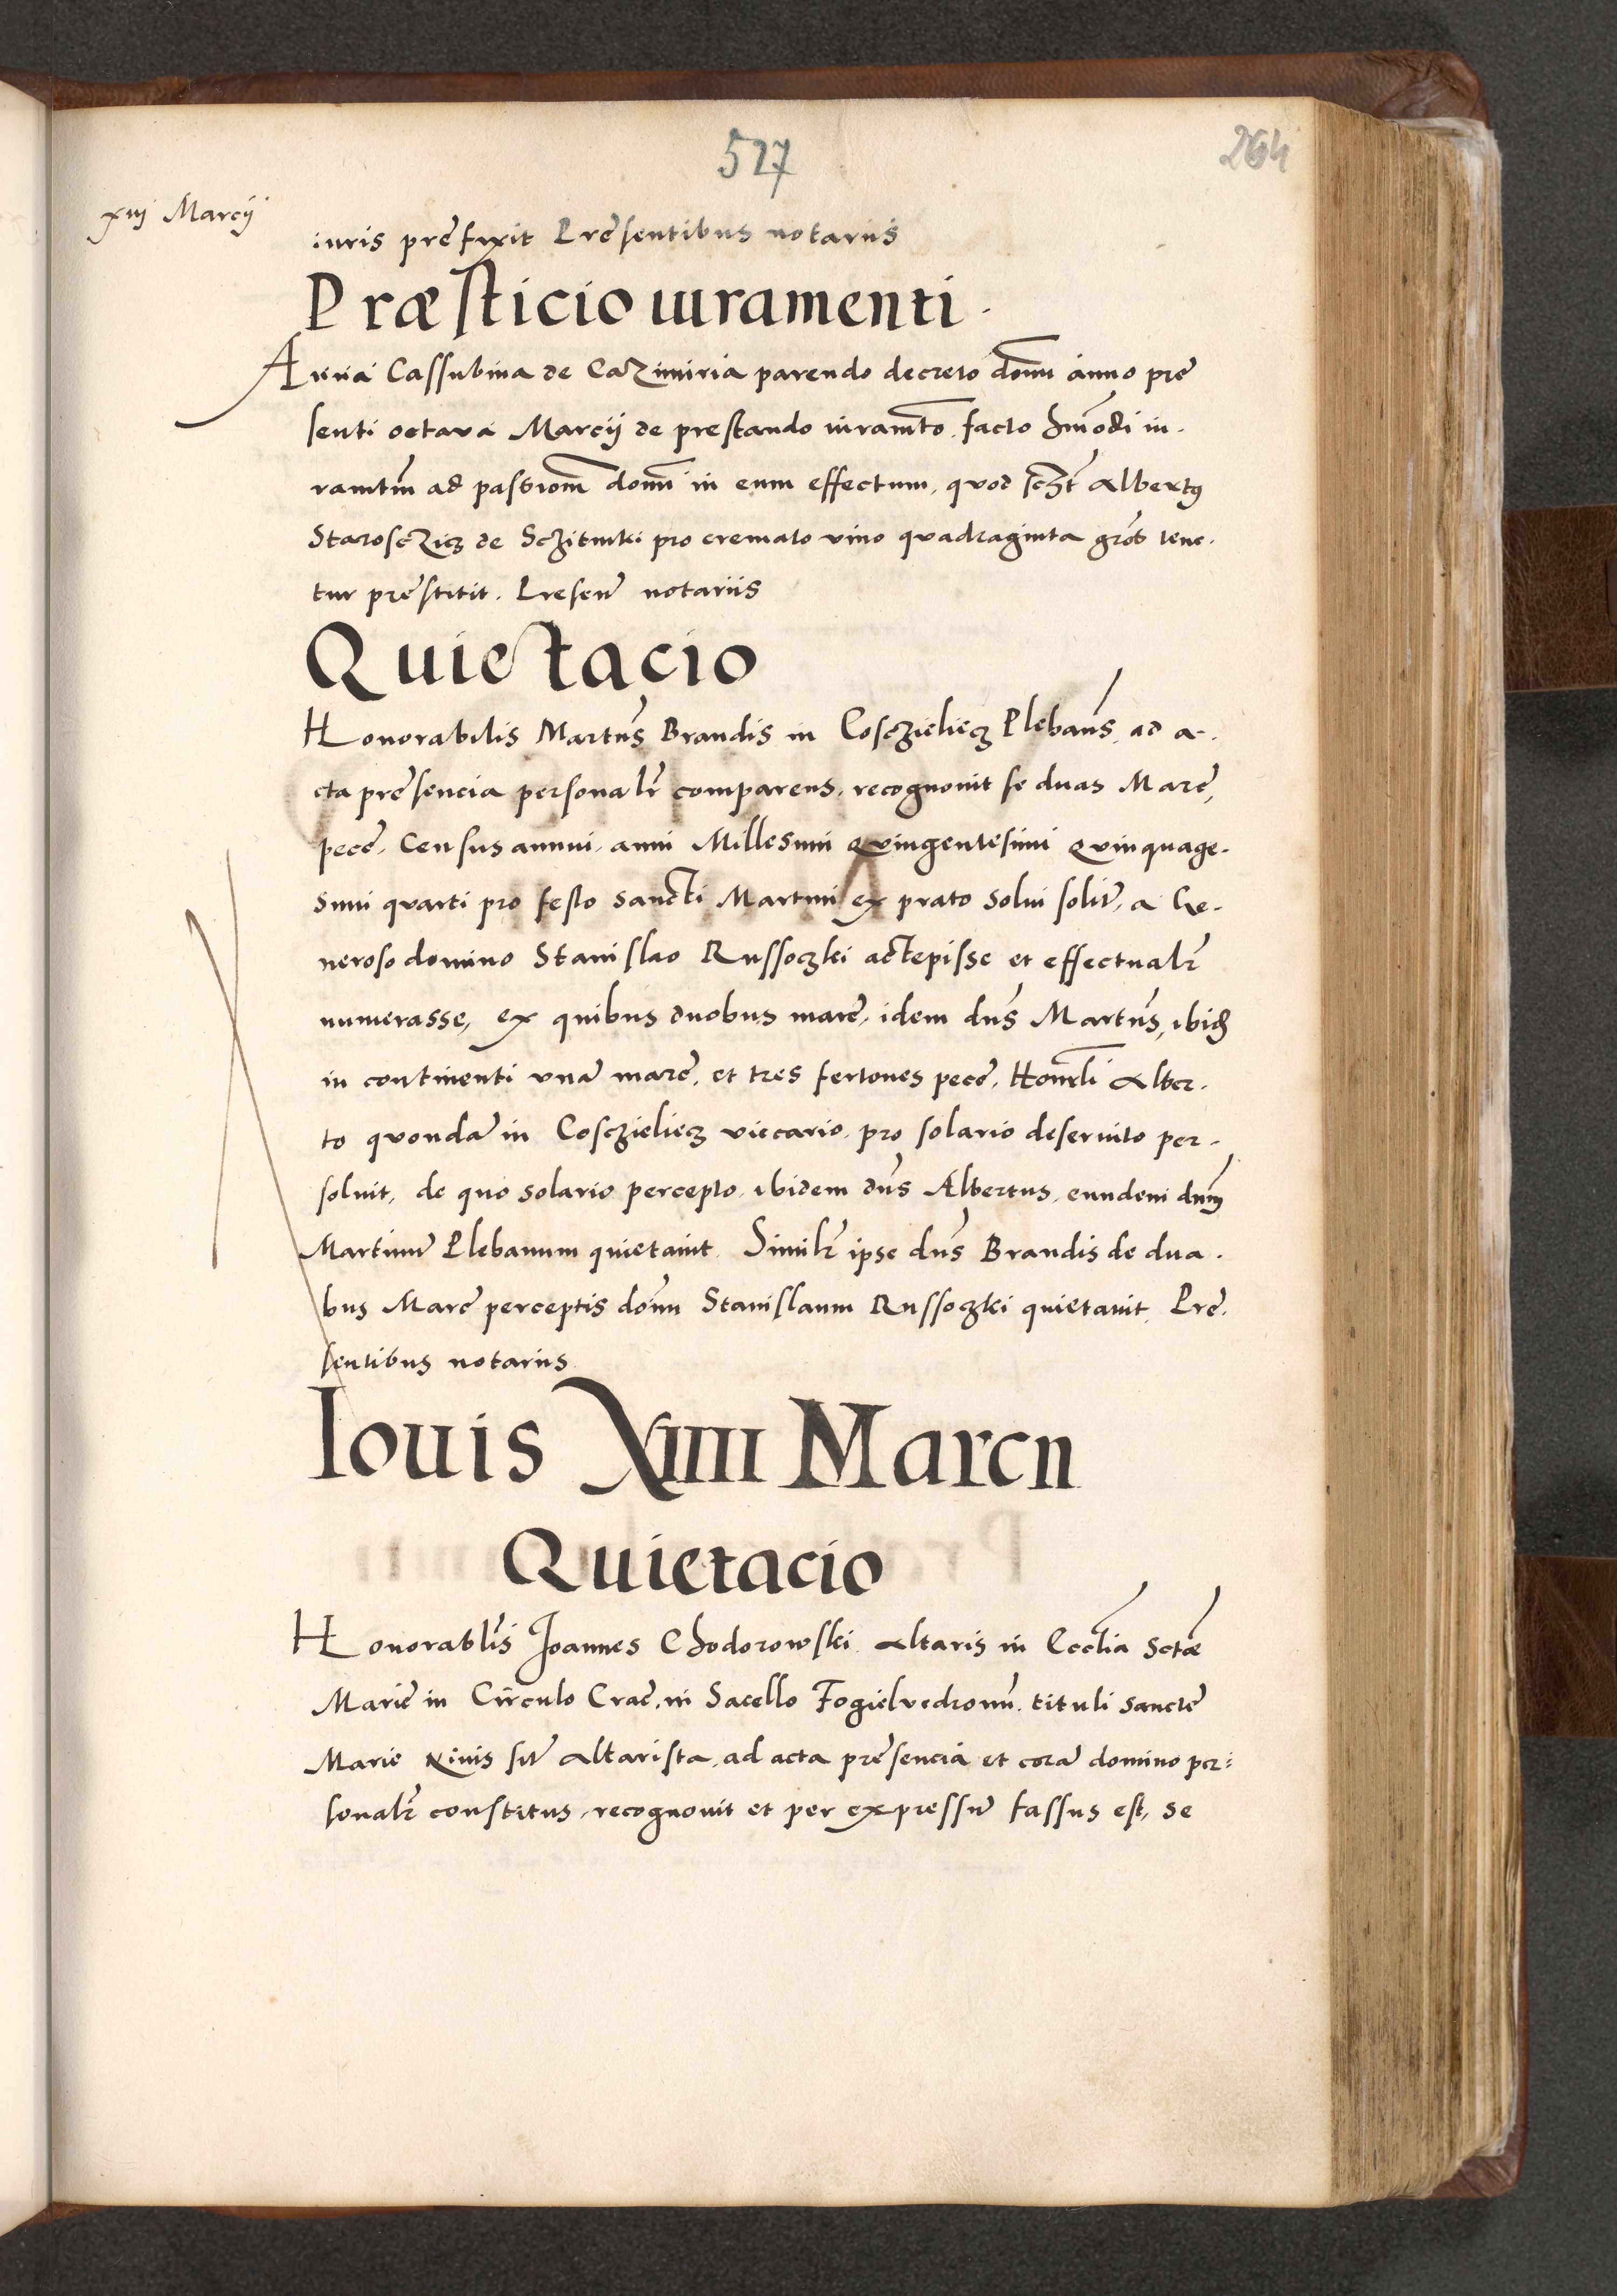 527
264
xiij Marcij
iuris prefixit Presentibus notariis
Præsticio iuramenti.
Anna Cassubina de Cazimiria parendo decreto domi anno pre
senti octava Marcij de prestando iuramto facto hmodi iu.
ramtm ad passiom domi in eum effectum, quod Albertus
de pro cremato vino quadraginta gros tene.
tur prestitit. Presen notariis
Quietacio
Honorabilis Martns Brandis in Cosczieliecz Plebans ad a.
cta presencia personalr comparens, recognovit se duas Marc,
pecc, Census annui, anni Millesimi Quingentesimi Quinquage.
simi quarti pro festo Sancti Martini ex prato solvi solit, a Ge.
neroso domino Stanislao Russoczki accepisse et effectualr
numerasse, ex quibus duobus marc, idem dns Martns, ibid
in continenti una marc, et tres fertones pecc, Honrli Alber.
to quonda in Cosczieliecz viccario, pro solario deservito per.
solvit, de quo solario percepto, ibidem dns Albertus, eundem dnm
Martinu Plebanum quietavit. Similr ipse dns Brandis de dua.
bus Marc perceptis domi Stanislaum Russoczki quietavit, Pre.
sentibus notariis
Iouis XIIII Marcii
Quietacio
Honorablis Joannes Chodorowski altaris in Ecclia Sctæ
Marie in Circulo Crac, in Sacello Fogielvedronu, tituli sancte
Marie Nivis sit altarista, ad acta presencia et cora domino per:
sonalr constitus, recognovit et per expressu fassus est, se